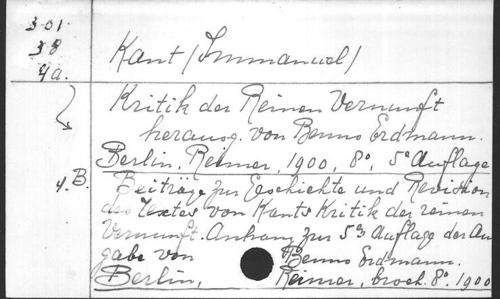 301
38
4a.
Kant (Immanuel)
Kritik der Reinen Vernunft
herausg. von Benno Erdmann.
Berlin, Reimer, 1900, 8°, 5e Auflage
4.B. Beiträge zur Geschichte und Revision
des Textes von Kants Kritik der reinen
Vernunft. Anhang zur 5en Auflage der Aus
gabe von Benno Erdmann.
Berlin, Reimer, broch. 8°. 1900